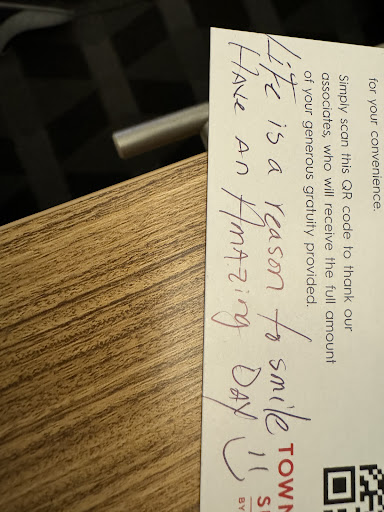 for your convenience.
Simply scan this QR code to thank our
associates, who will receive the full amount
of your generous gratuity provided.
Life is a reason to smile
HAVE AN AMAZING DAY
TOWN
BY